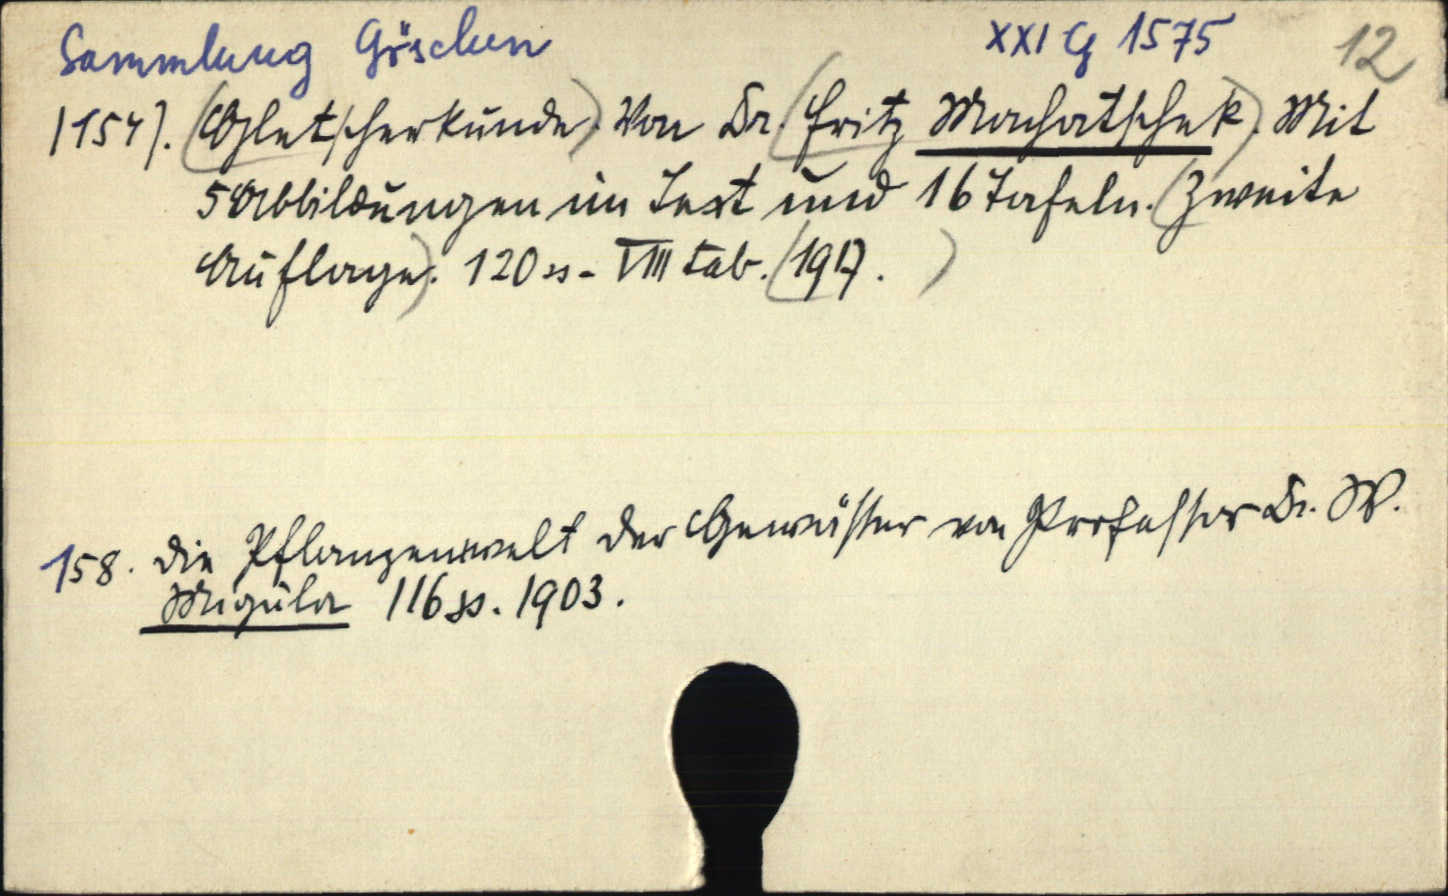 Sammlung Göschen XXI G 1575 12
/154/. (Gletscherkunde). Von Dr. (Fritz Machatschek). Mit
5 Abbildungen im Text und 16 Tafeln. (Zweite
Auflage). 120 ss - VIII tab. (1917. )
158. Die Pflanzenwelt der Gewässer von Professor Dr. W.
Migula 116 ss. 1903.